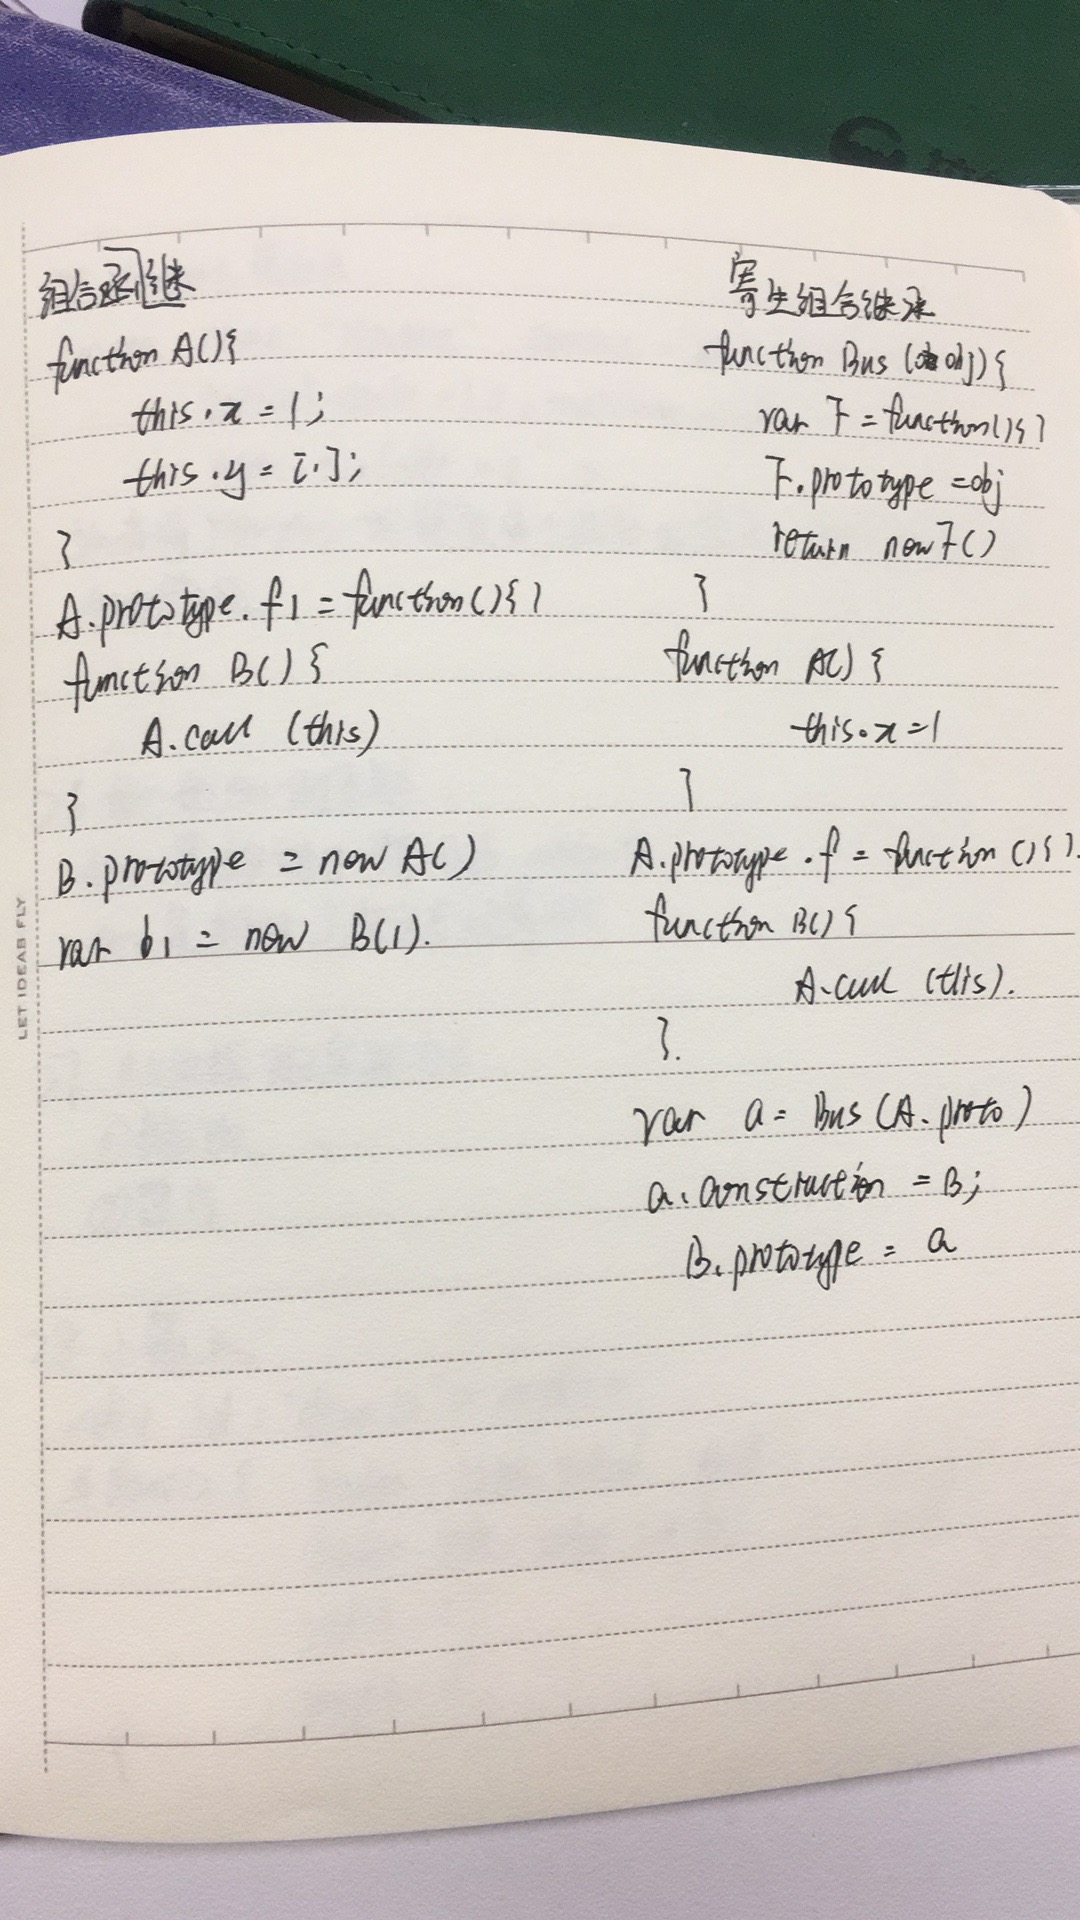 组合承继
function A(){
this.x = 1;
this.y = [1];
}
A.prototype.f1 = function(){}
function B(){
A.call (this)
}
B.prototype = new A()
var b1 = new B(1).
寄生组合继承
function Bus (obj){
var F = function(){}
F.prototype = obj
return new F()
}
function A() {
this.x = 1
}
A.prototype.f = function(){}.
function B(){
A.call (this).
}.
var a = Bus (A.proto)
a.construction = B;
B.prototype = a
LET IDEAS FLY